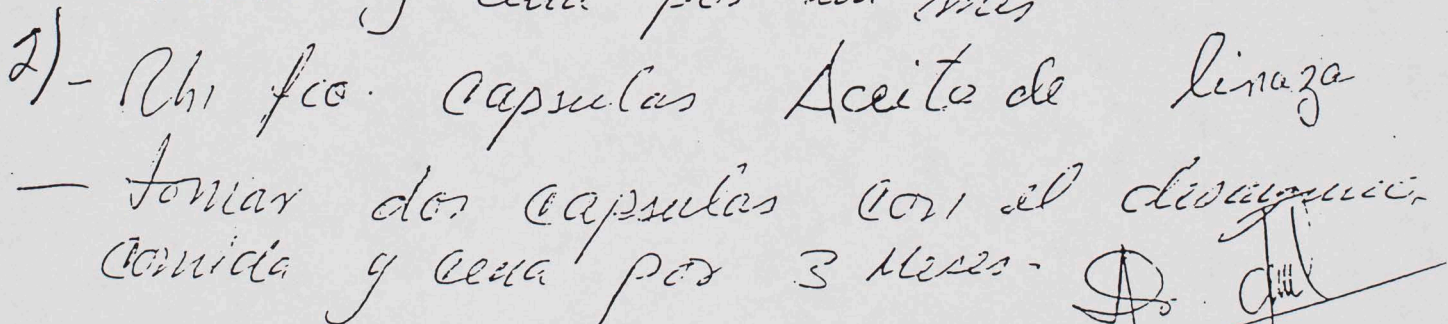 y cena por un mes
2)- Un fco. capsulas Aceite de linaza
— tomar dos capsulas con el desayuno,
comida y cena por 3 Meses-